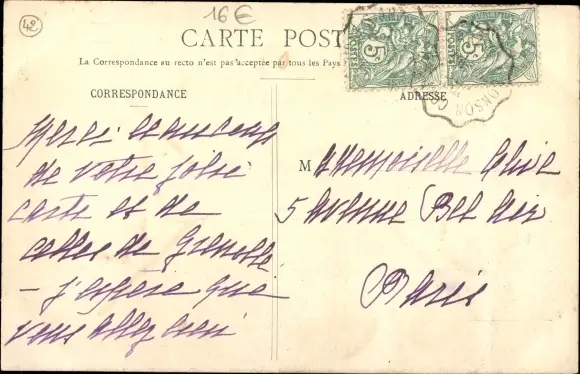 42
16€
CARTE POST
La Correspondance au recto n'est pas acceptée par tous les Pays
CORRESPONDANCE
ADRESSE
POSTES
5c
5c
Merci beaucoup
de votre jolie
carte et de
celles de Grenoble
– j'espère que
vous allez bien
Mademoiselle
5 Avenue Bel Air
Paris